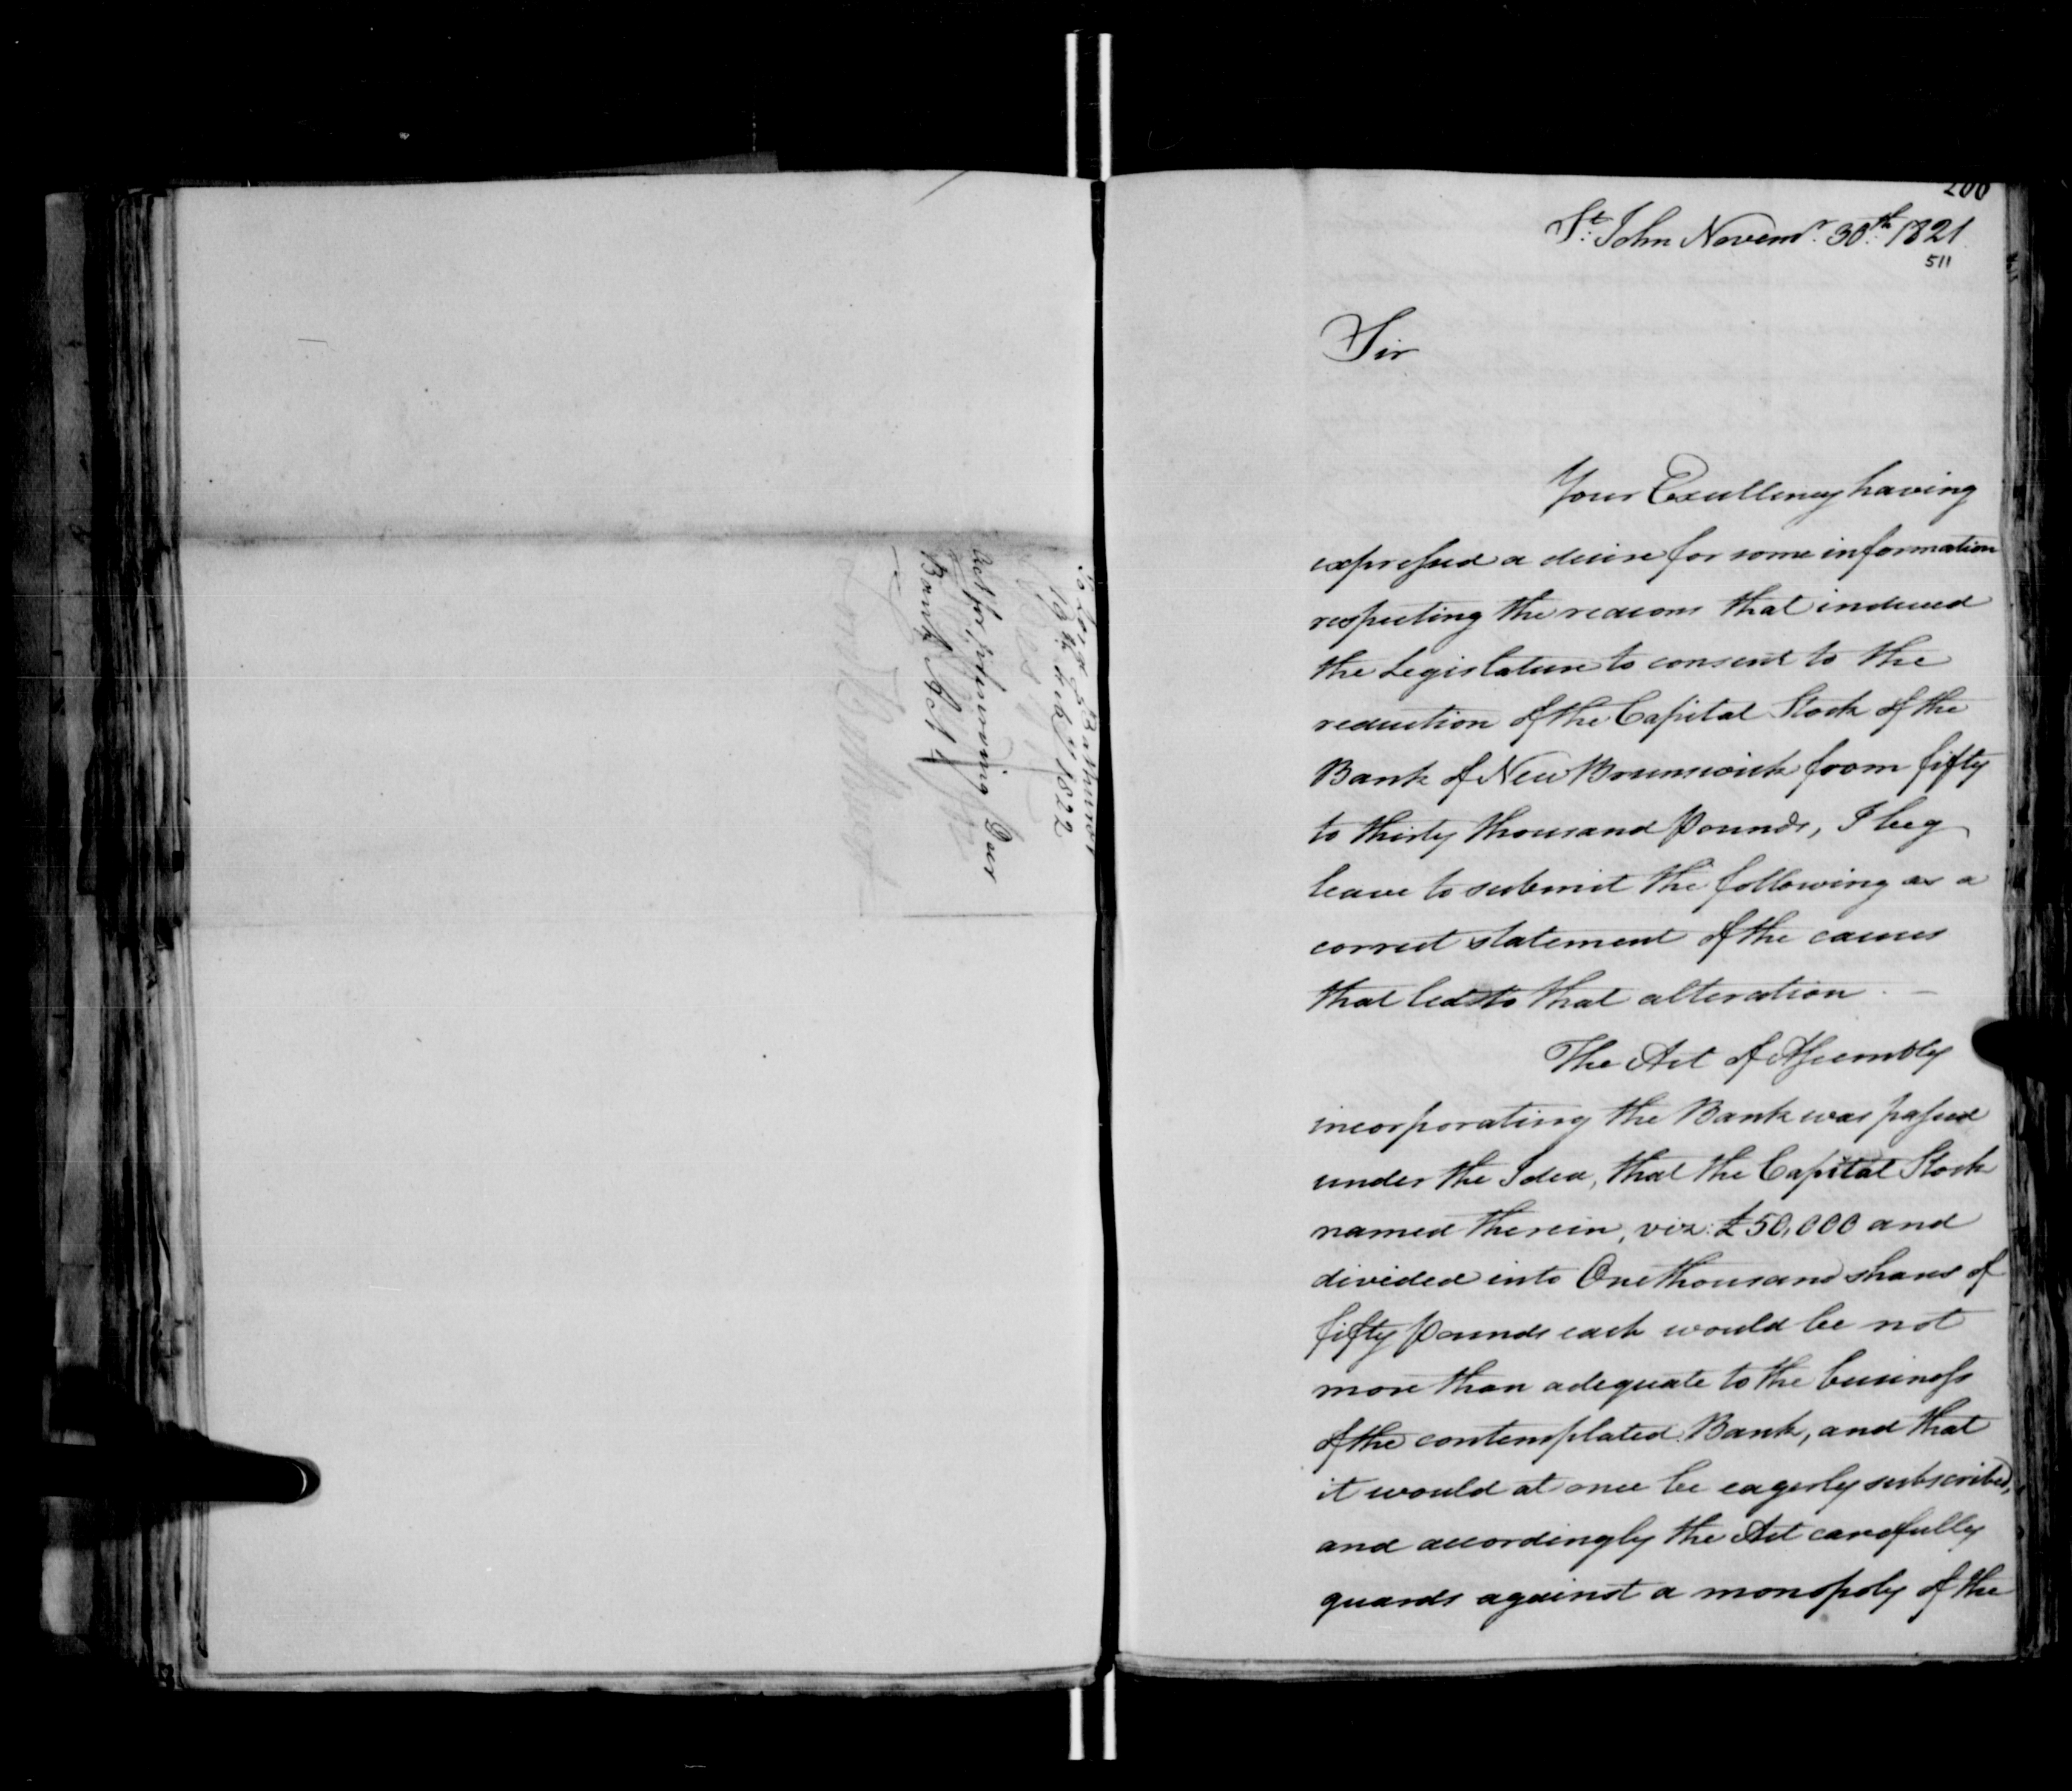 To Lord Bathurst
19th Feb.y 1822
Bank Act
200
St. John Novemr. 30th. 1821
511
Sir
Your Excellency having
expressed a desire for some information
respecting the reasons that induced
the Legislature to consent to the
reduction of the Capital Stock of the
Bank of New Brunswick from fifty
to thirty thousand Pounds, I beg
leave to submit the following as a
correct statement of the causes
that led to that alteration. —
The Act of Assembly
incorporating the Bank was passed
under the Idea, that the Capital Stock
named therein, viz: £50,000 and
divided into One thousand shares of
fifty Pounds each would be not
more than adequate to the business
of the contemplated Bank, and that
it would at once be eagerly subscribed,
and accordingly the Act carefully
guards against a monopoly of the